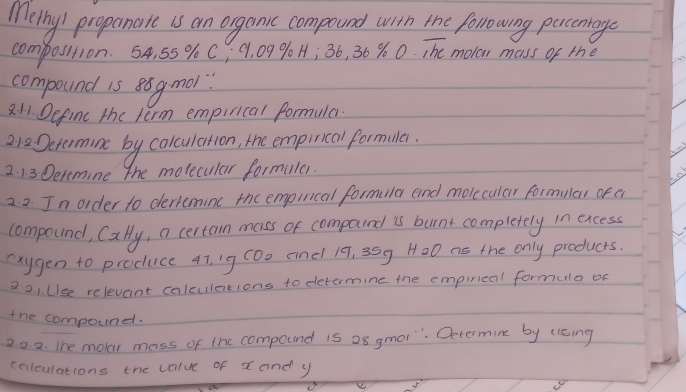 Methyl propanoate is an organic compound with the following percentage
composition. 54,55 % C ; 9,09 % H ; 36,36 % O. The molar mass of the
compound is 88 g·mol⁻¹.
2.1.1. Define the term empirical formula.
2.1.2 Determine by calculation, the empirical formula.
2.1.3 Determine the molecular formula.
2.2. In order to dertemine the empirical formula and molecular formular of a
compound, CxHy, a certain mass of compound is burnt completely in excess
oxygen to produce 47,1g CO2 and 19,35g H2O as the only products.
2.2.1. Use relevant calculations to determine the empirical formula of
the compound.
2.2.2. The molar mass of the compound is 28 gmol⁻¹. Determine by using
calculations the value of x and y